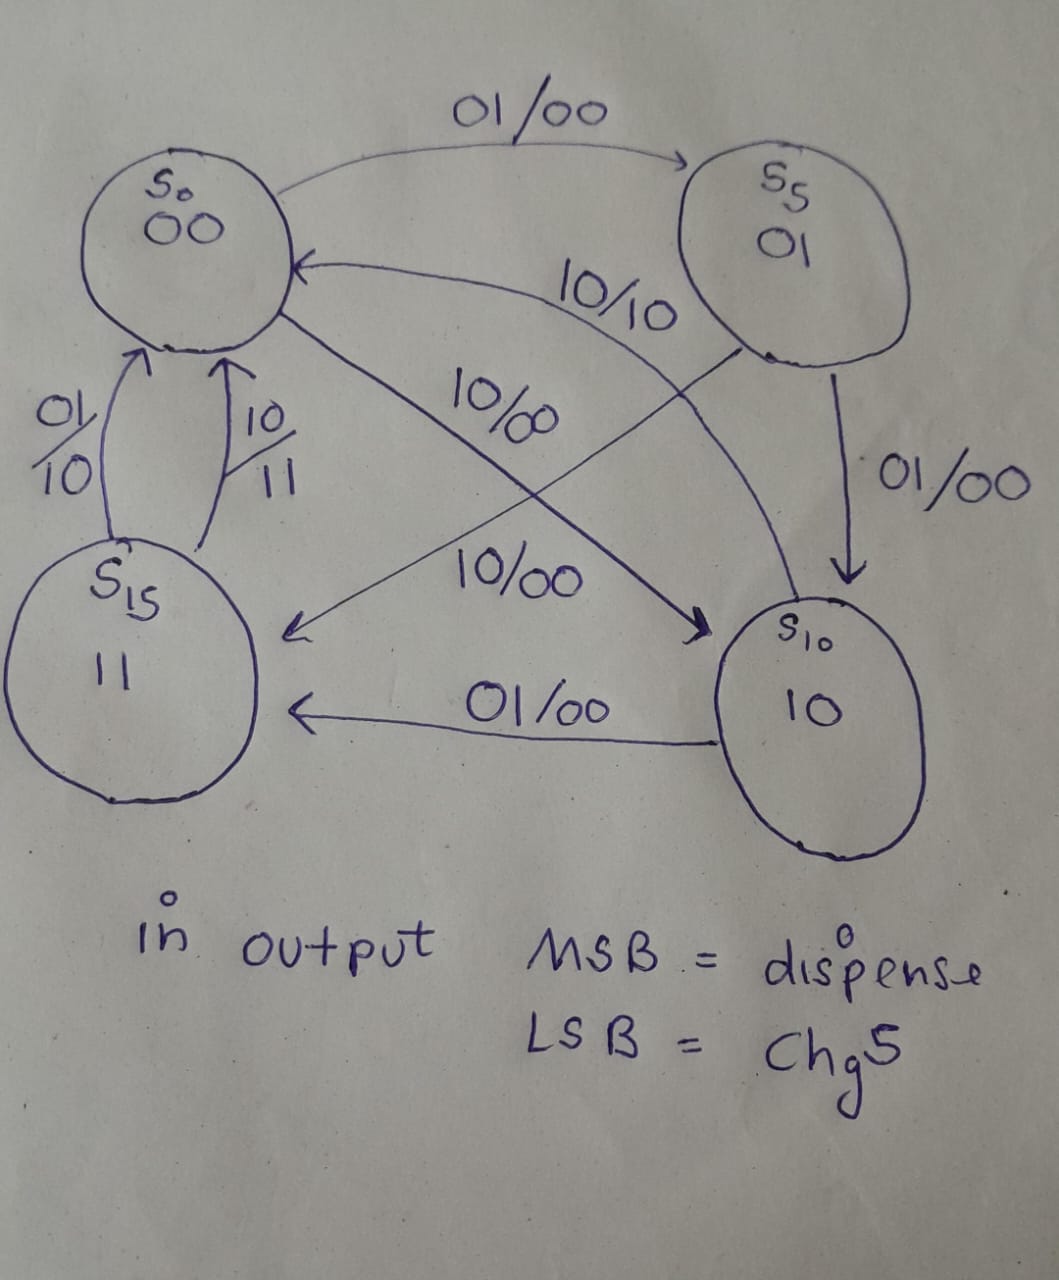 01/00
S0
00
S5
01
10/10
10/00
01/10
10/11
01/00
10/00
S15
11
S10
10
01/00
in output MSB = dispense
LSB = Chg5